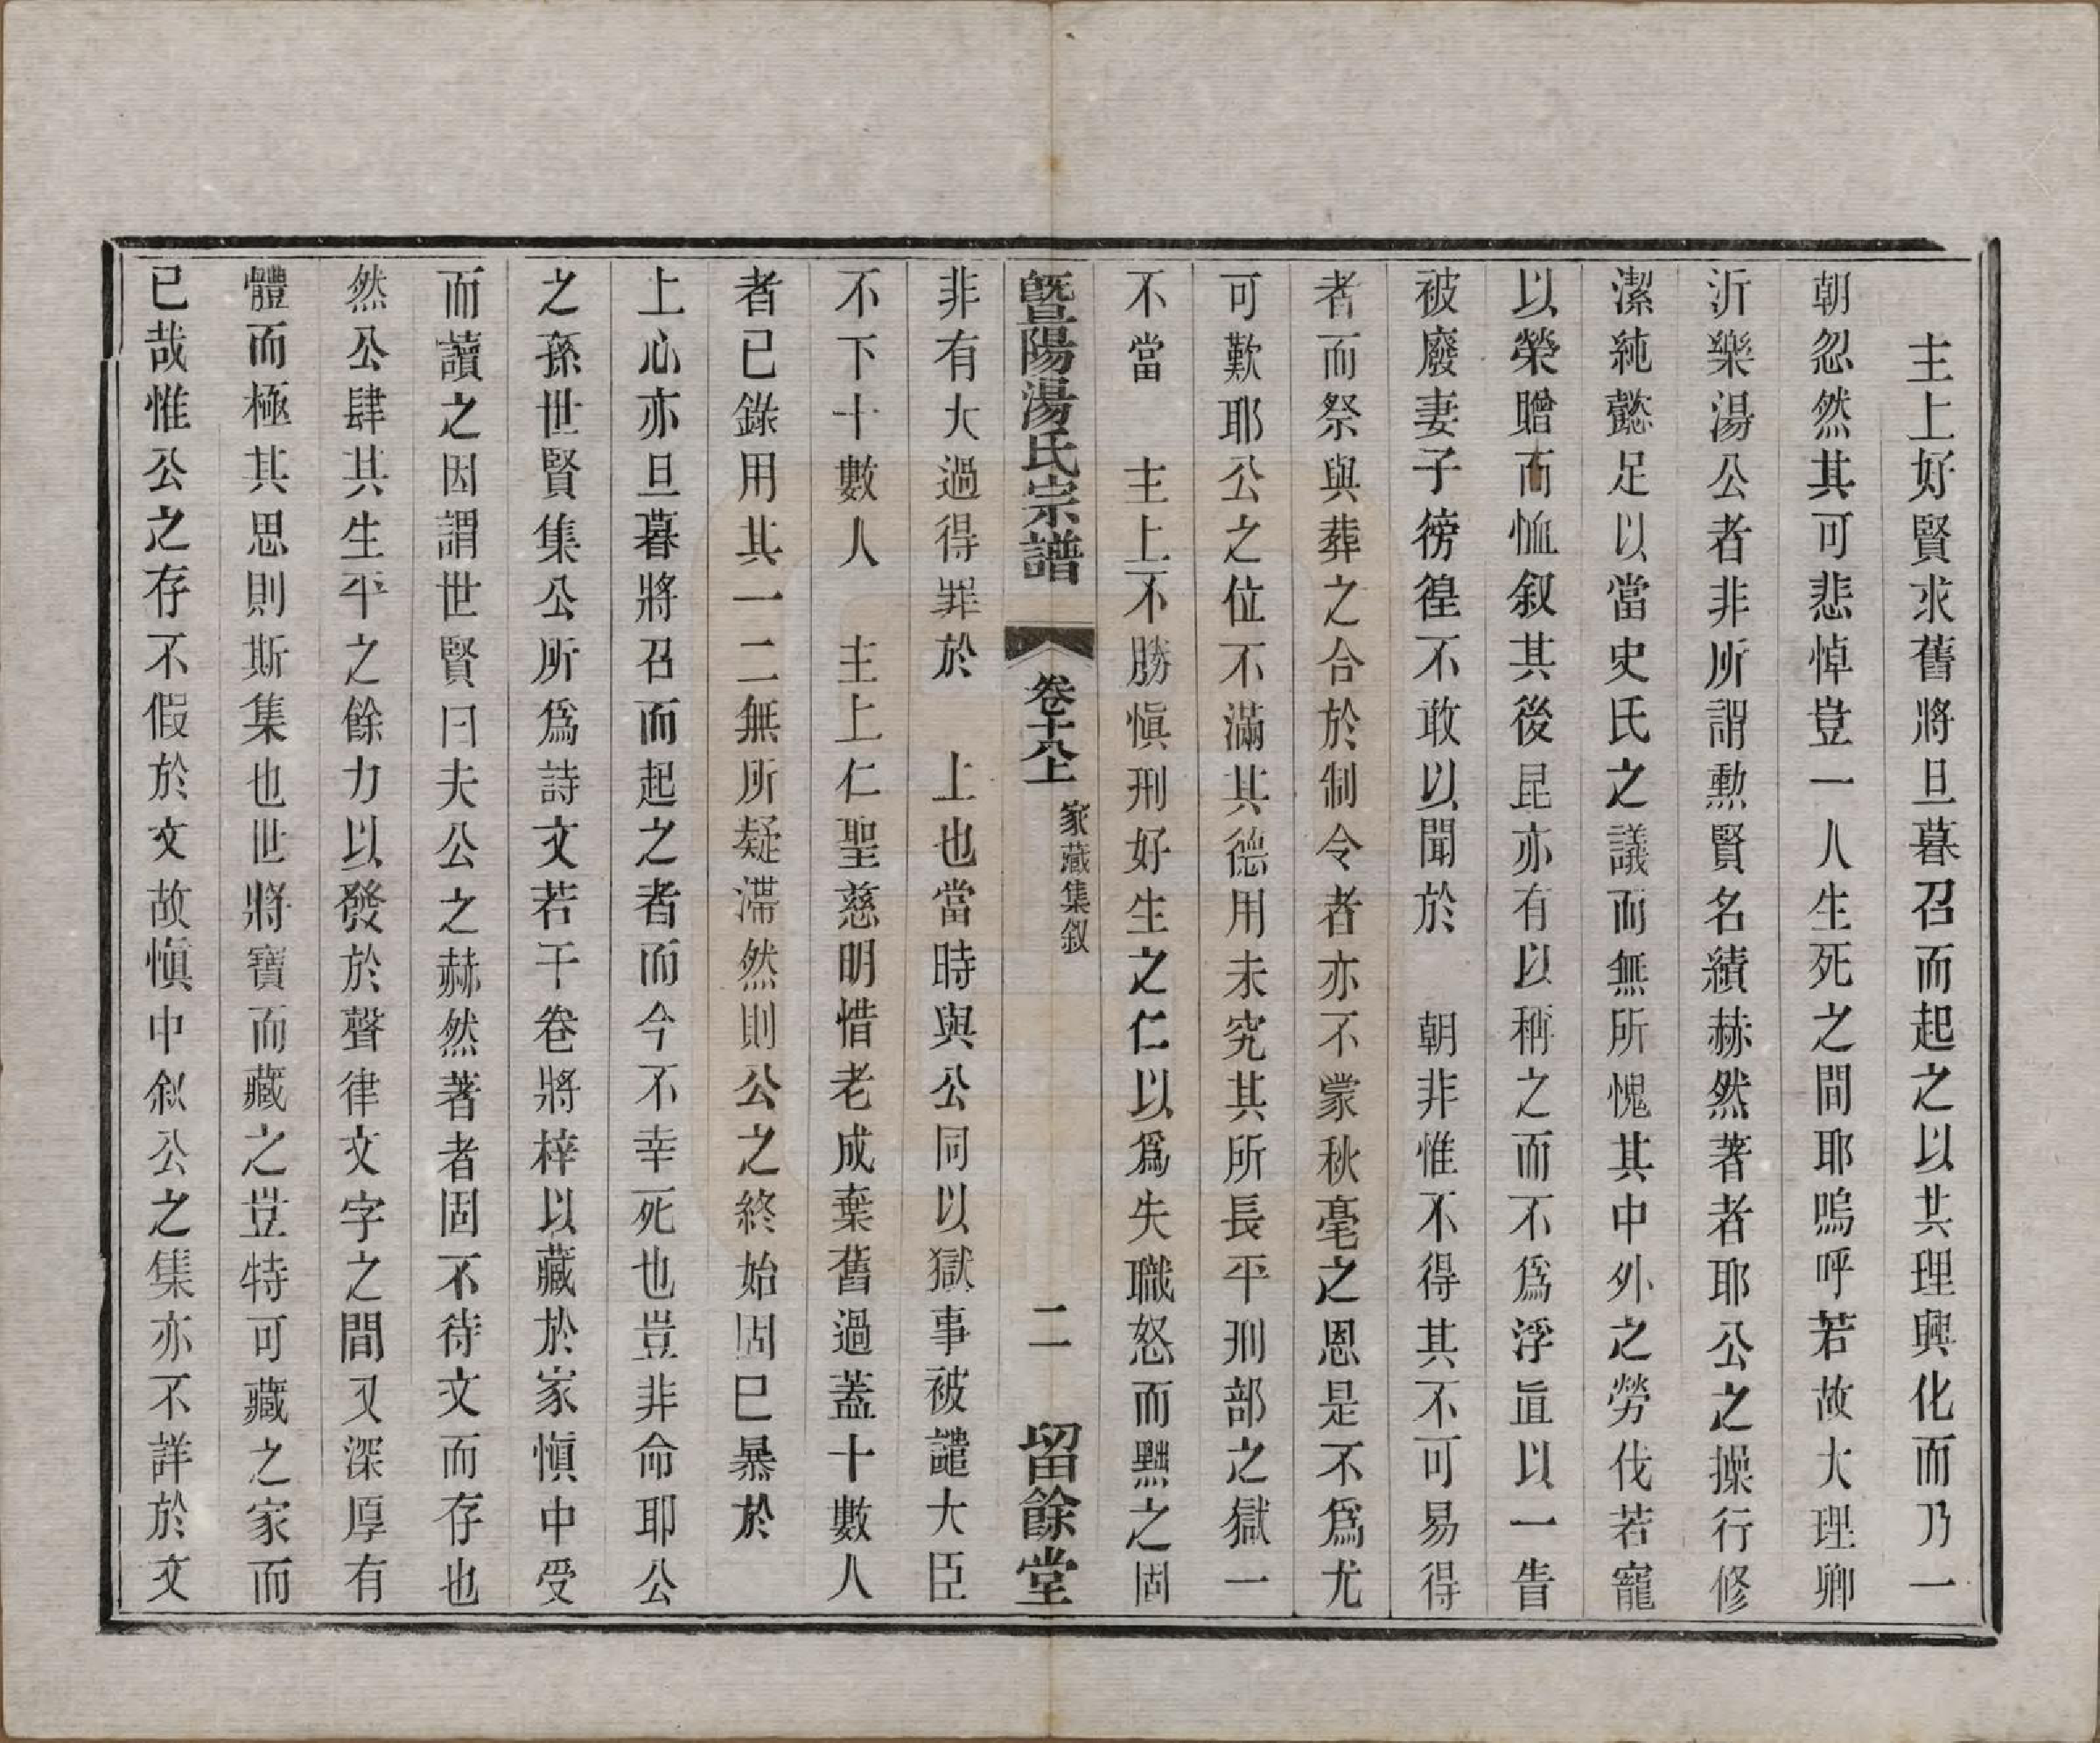 主上好賢求舊將旦暮召而起之以共理興化而乃一
朝忽然其可悲悼豈一人生死之間耶嗚呼若故大理卿
沂樂湯公者非所謂勲賢名績赫然著者耶公之操行修
潔純懿足以當史氏之議而無所愧其中外之勞伐若寵
以榮贈而恤叙其後昆亦有以稱之而不爲浮眞以一眚
被廢妻子徬徨不敢以聞於　朝非惟不得其不可易得
者而祭與葬之合於制令者亦不蒙秋毫之恩是不爲尤
可歎耶公之位不滿其德用未究其所長平刑部之獄一
不當　主上不勝愼刑好生之仁以爲失職怒而黜之固
暨陽湯氏宗譜　卷十八上　家藏集叙　二　留餘堂
非有大過得罪於　上也當時與公同以獄事被譴大臣
不下十數人　主上仁聖慈明惜老成棄舊過蓋十數人
者已錄用其一二無所疑滯然則公之終始固已暴於
上心亦旦暮將召而起之者而今不幸死也豈非命耶公
之孫世賢集公所爲詩文若干卷將梓以藏於家愼中受
而讀之因謂世賢曰夫公之赫然著者固不待文而存也
然公肆其生平之餘力以發於聲律文字之間又深厚有
體而極其思則斯集也世將寶而藏之豈特可藏之家而
已哉惟公之存不假於文故愼中叙公之集亦不詳於文